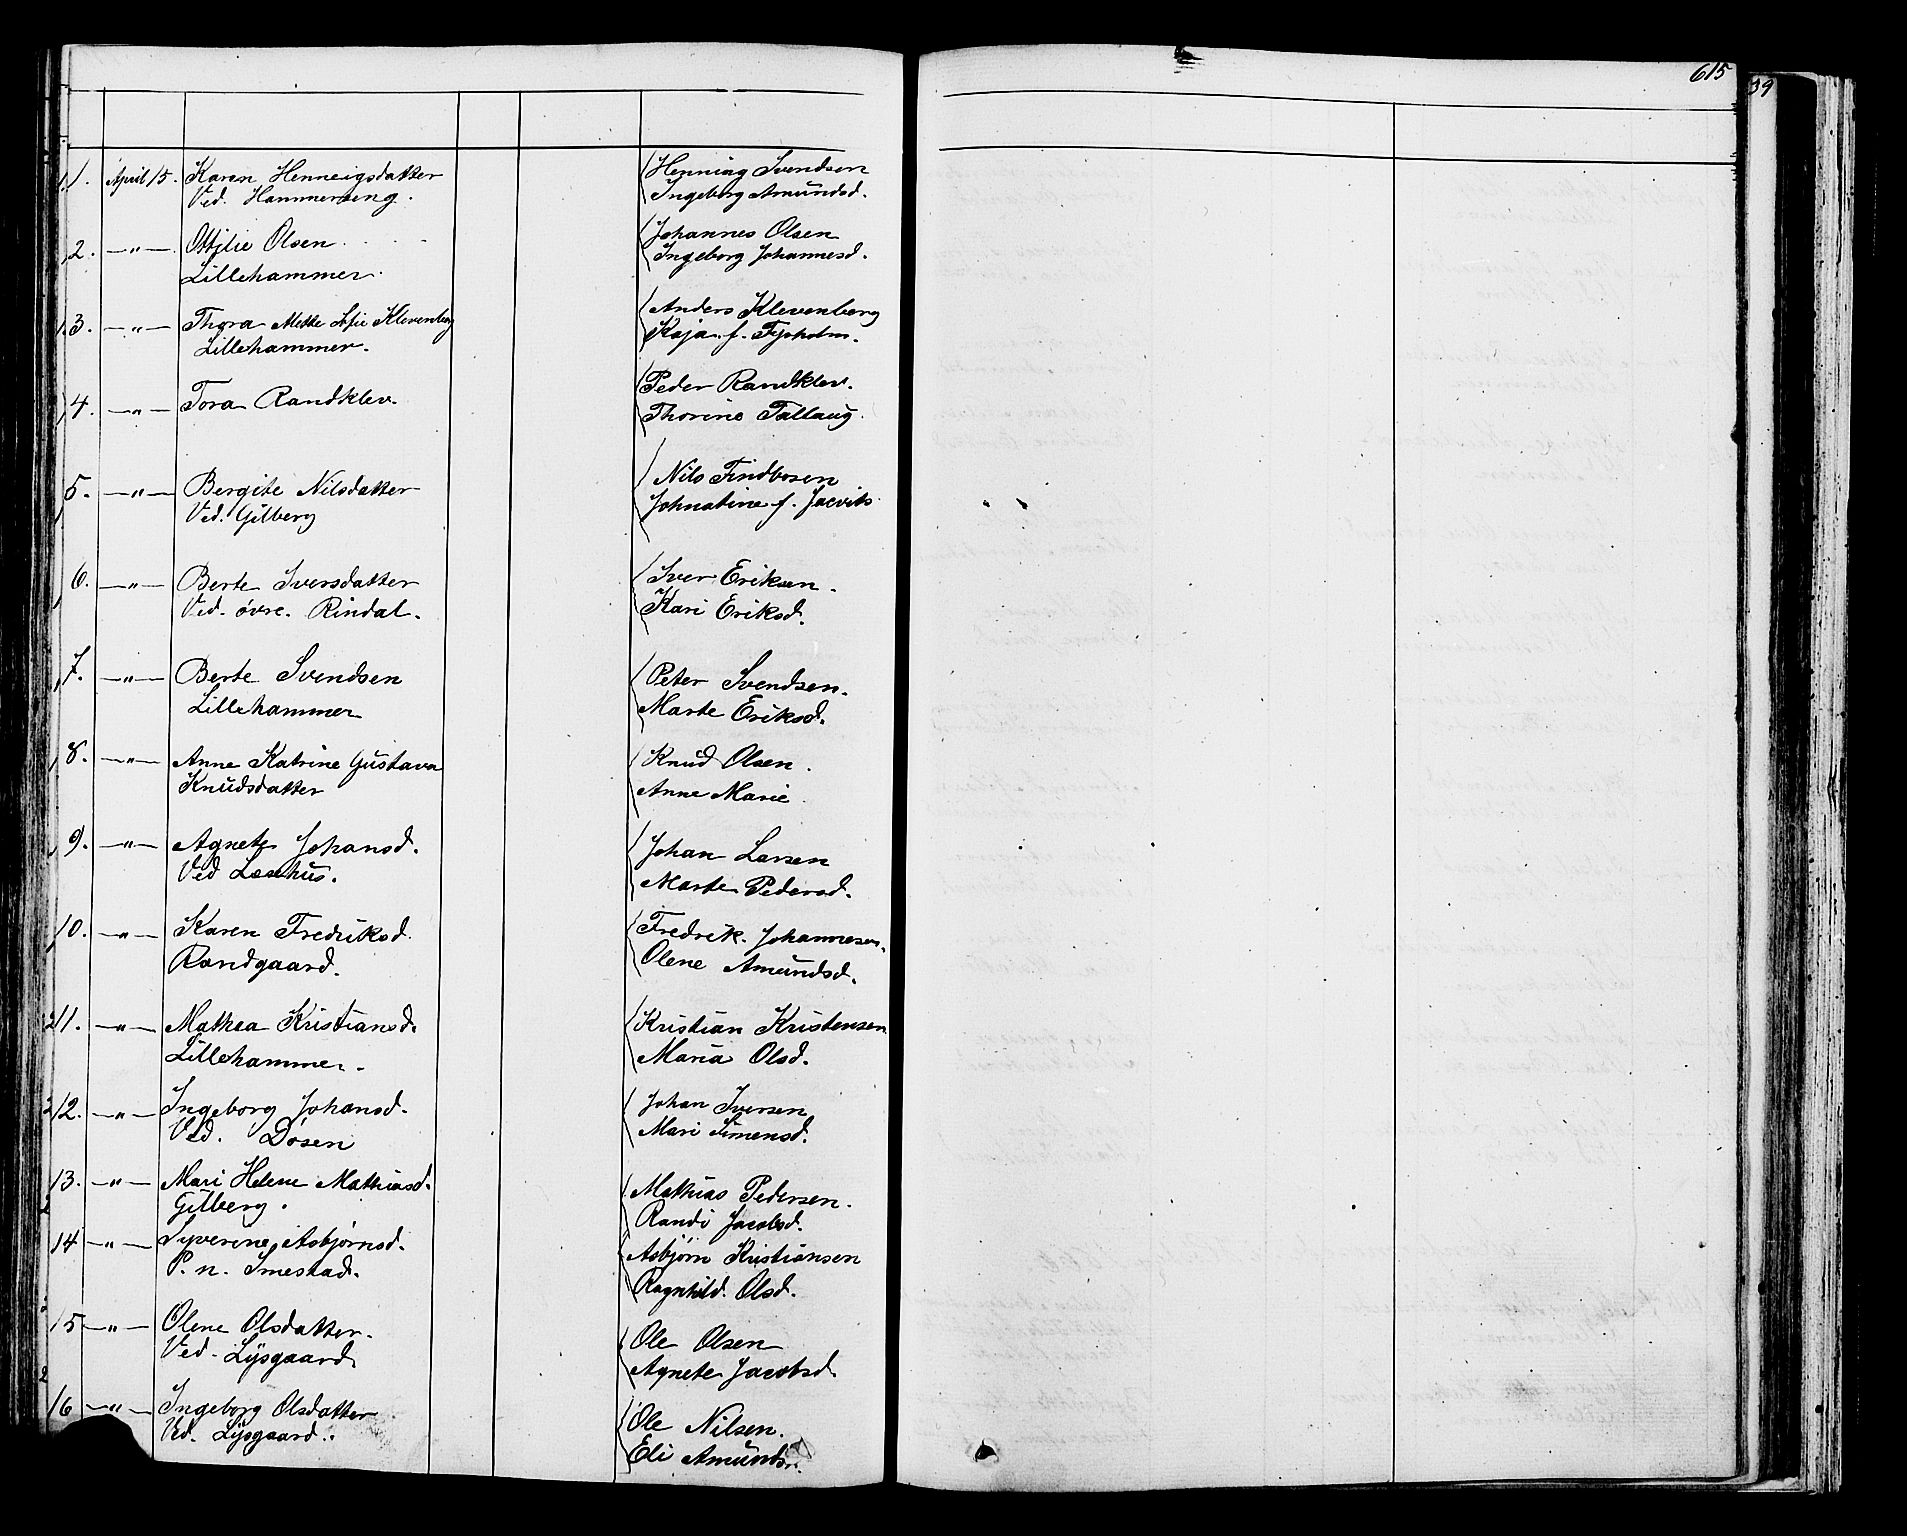 615
39
1. April 15. Karen Henneigsdatter
Ved. Hammerseng.
Henning Svendsen
Ingeborg Amundsd.
2. —"— Ottilie Olsen
Lillehammer.
Johannes Olsen
Ingeborg Johannesd.
3. —"— Thora Mette Sofie Klevenberg
Lillehammer.
Anders Klevenberg
Kaja f.
4. —"— Tora Randklev.
Peder Randklev.
Thorine Tallaug.
5. —"— Bergite Nilsdatter
Ved. Gilberg
Nils Findbosen
Johnatine f.
6. —"— Berte Iversdatter
Ved. övre. Rindal.
Iver Eriksen.
Kari Eriksd.
7. —"— Berte Svendsen
Lillehammer
Peter Svendsen.
Marte Eriksd.
8. —"— Anne Katrine Gustava
Knudsdatter
Knud Olsen.
Anne Marie.
9. —"— Agnete Johansd.
Ved
Johan Larsen
Marte Pedersd.
10. —"— Karen Fredriksd.
Randgaard.
Fredrik. Johannesen.
Olene Amundsd.
11. —"— Mathea Kristiansd.
Lillehammer.
Kristian Kristensen
Maria Olsd.
12. —"— Ingeborg Johansd.
Ved. Dösen
Johan Iversen
Mari Simensd.
13. —"— Mari Helene Mathiasd.
Gilberg.
Mathias Pedersen.
Randi Jacobsd.
14 —"— Syverine Asbjørnsd.
P. n. Imestad.
Asbjørn Kristiansen
Ragnhild. Olsd.
15 —"— Olene Olsdatter.
Ved. Lysgaard
Ole Olsen
Agnete Jacobsd.
16 —"— Ingeborg Olsdatter
Ved. Lysgaard.
Ole Nilsen.
Eli